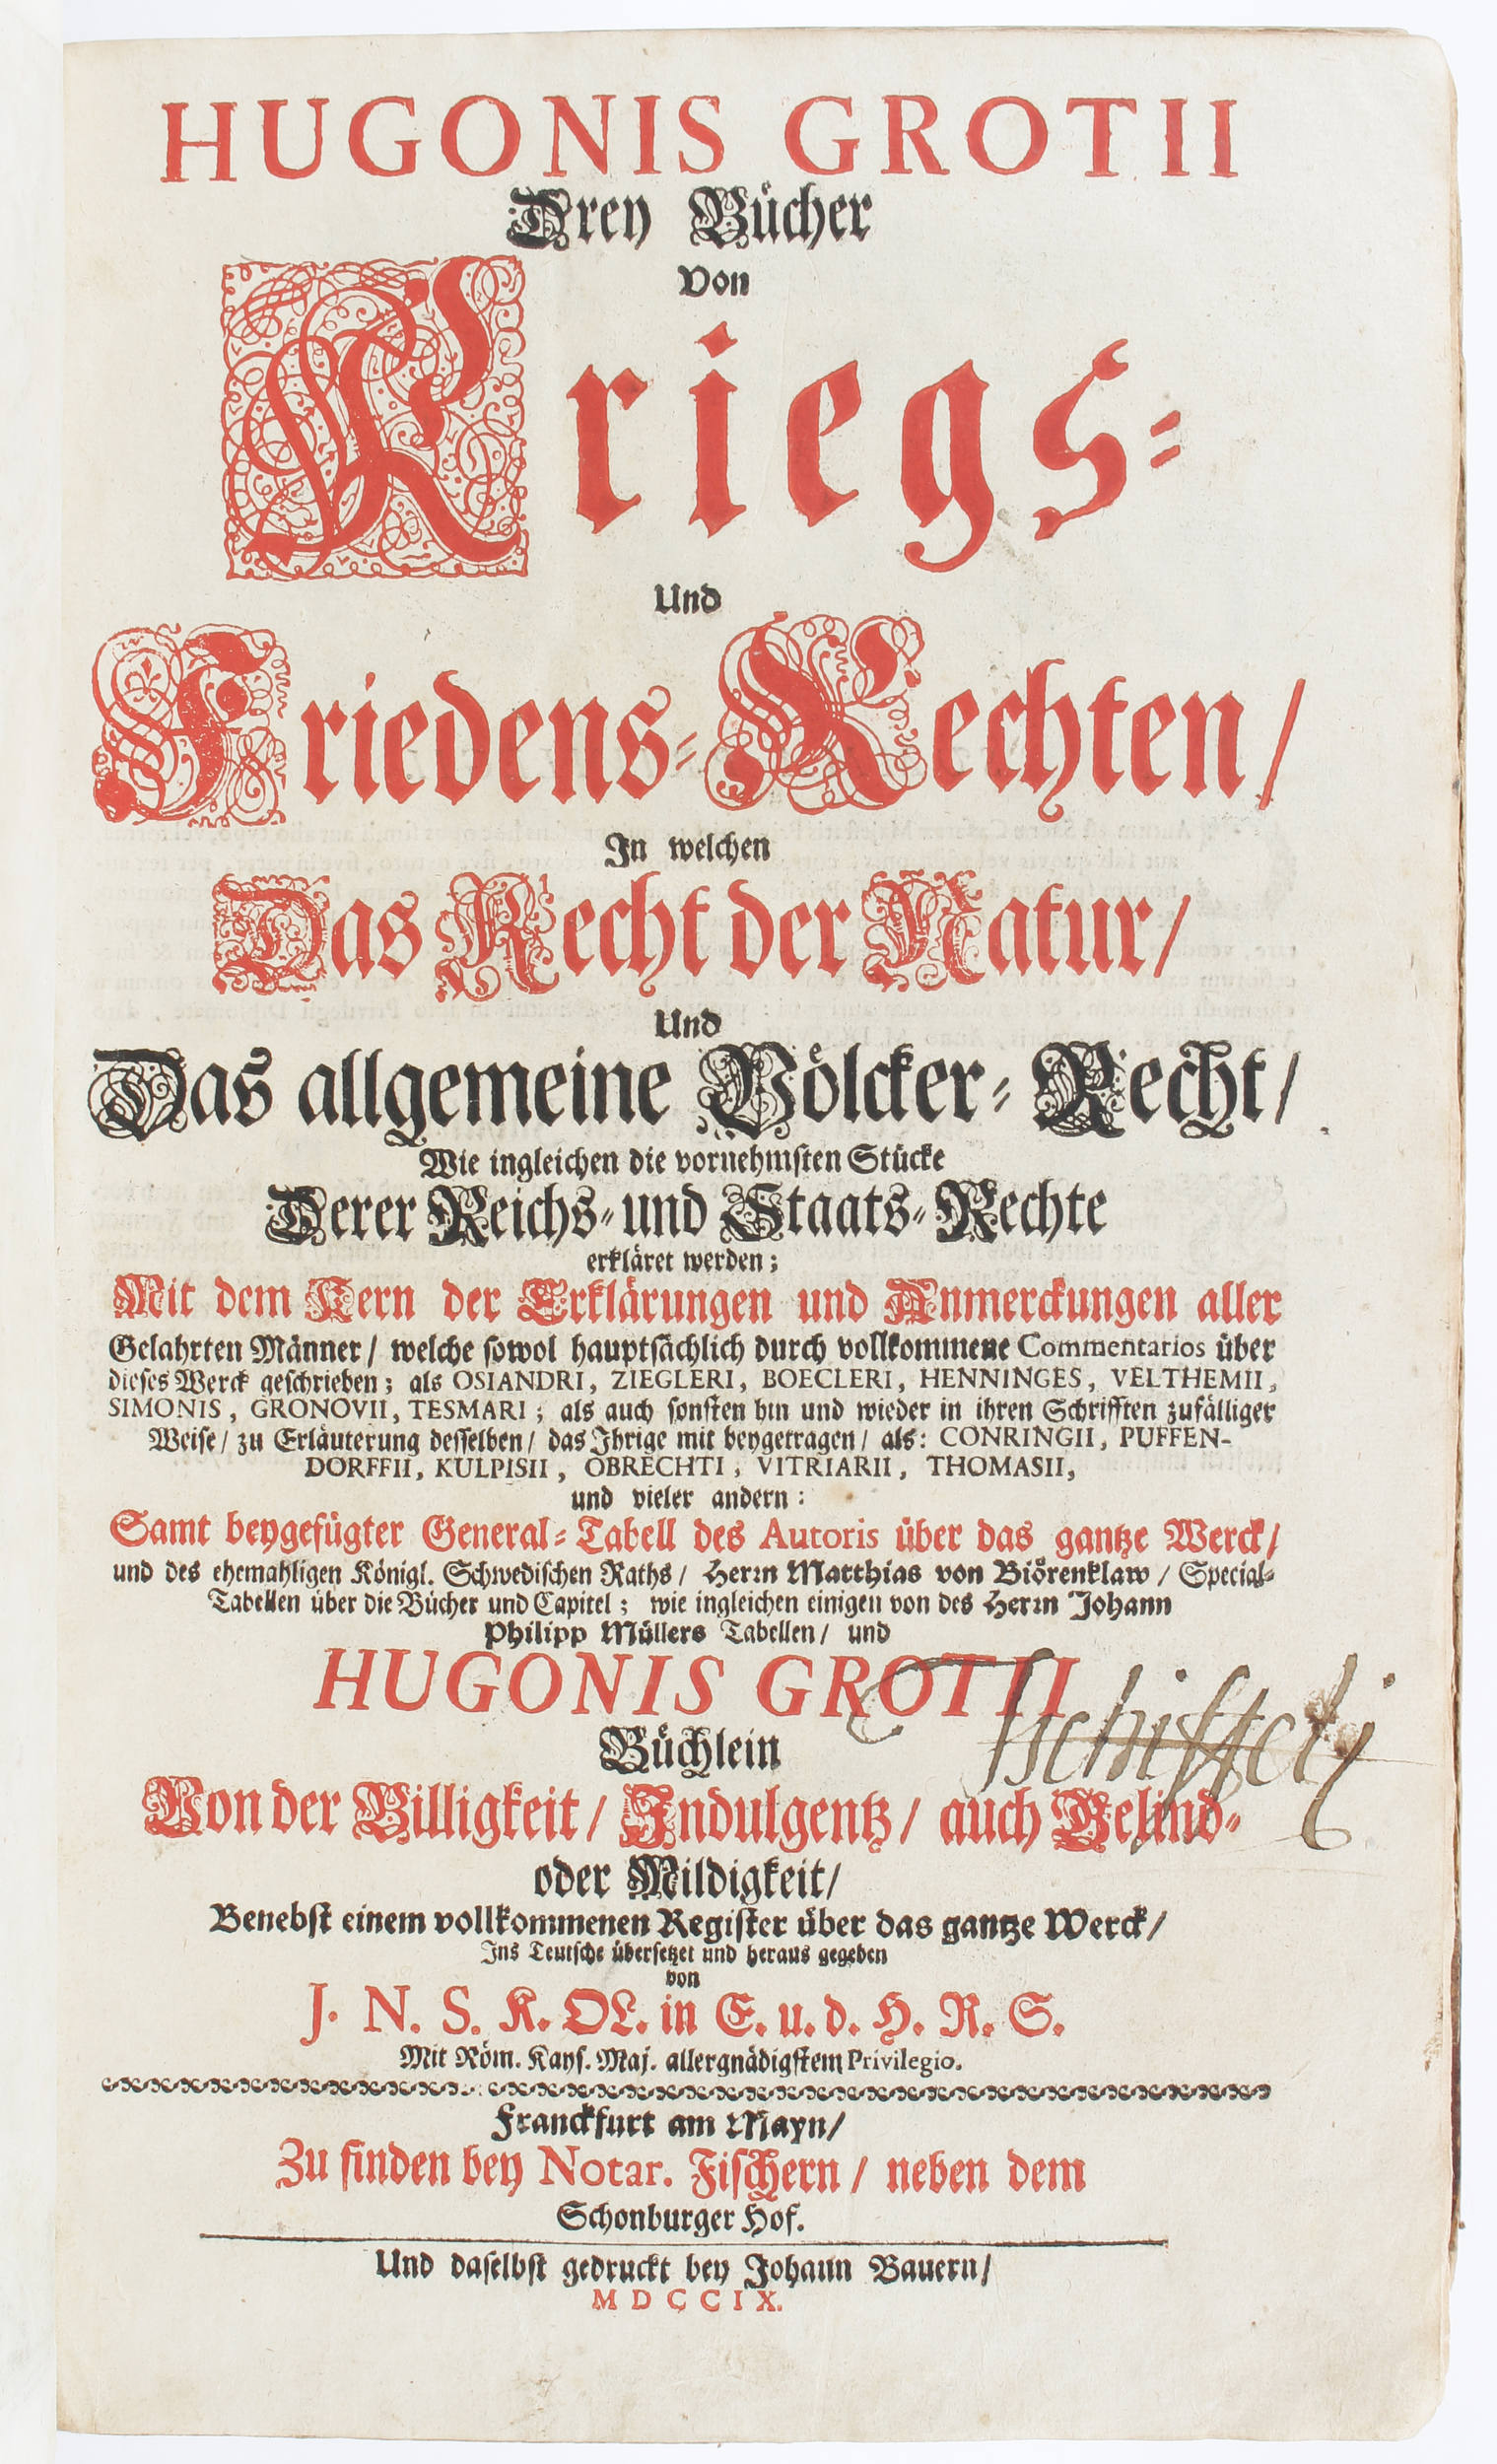 HUGONIS GROTII
Drey Bücher
Von
Kriegs-
Und
Friedens-Rechten/
In welchen
Das Recht der Natur/
Und
Das allgemeine Völcker-Recht/
Wie ingleichen die vornehmsten Stücke
Derer Reichs- und Staats-Rechte
erkläret werden;
Mit dem Kern der Erklärungen und Anmerckungen aller
Gelahrten Männer/ welche sowol hauptsächlich durch vollkommene Commentarios über
dieses Werck geschrieben; als OSIANDRI, ZIEGLERI, BOECLERI, HENNINGES, VELTHEMII,
SIMONIS, GRONOVII, TESMARI; als auch sonsten hin und wieder in ihren Schrifften zufälliger
Weise/ zu Erläuterung desselben/ das Ihrige mit beygetragen/ als: CONRINGII, PUFFEN-
DORFFII, KULPISII, OBRECHTI, VITRIARII, THOMASII,
und vieler andern:
Samt beygefügter General-Tabell des Autoris über das gantze Werck/
und des ehemahligen Königl. Schwedischen Raths/ Herrn Matthias von Biörenklaw/ Special-
Tabellen über die Bücher und Capitel; wie ingleichen einigen von des Herrn Johann
Philipp Müllers Tabellen/ und
HUGONIS GROTII
Tschiffeli
Büchlein
Von der Billigkeit/ Indulgentz/ auch Gelind-
oder Mildigkeit/
Benebst einem vollkommenen Register über das gantze Werck/
Ins Teutsche übersetzet und heraus gegeben
von
J. N. S. K. OL. in E. u. d. H. R. S.
Mit Röm. Kays. Maj. allergnädigstem Privilegio.
Franckfurt am Mayn/
Zu finden bey Notar. Fischern/ neben dem
Schonburger Hof.
Und daselbst gedruckt bey Johann Bauern/
MDCCIX.